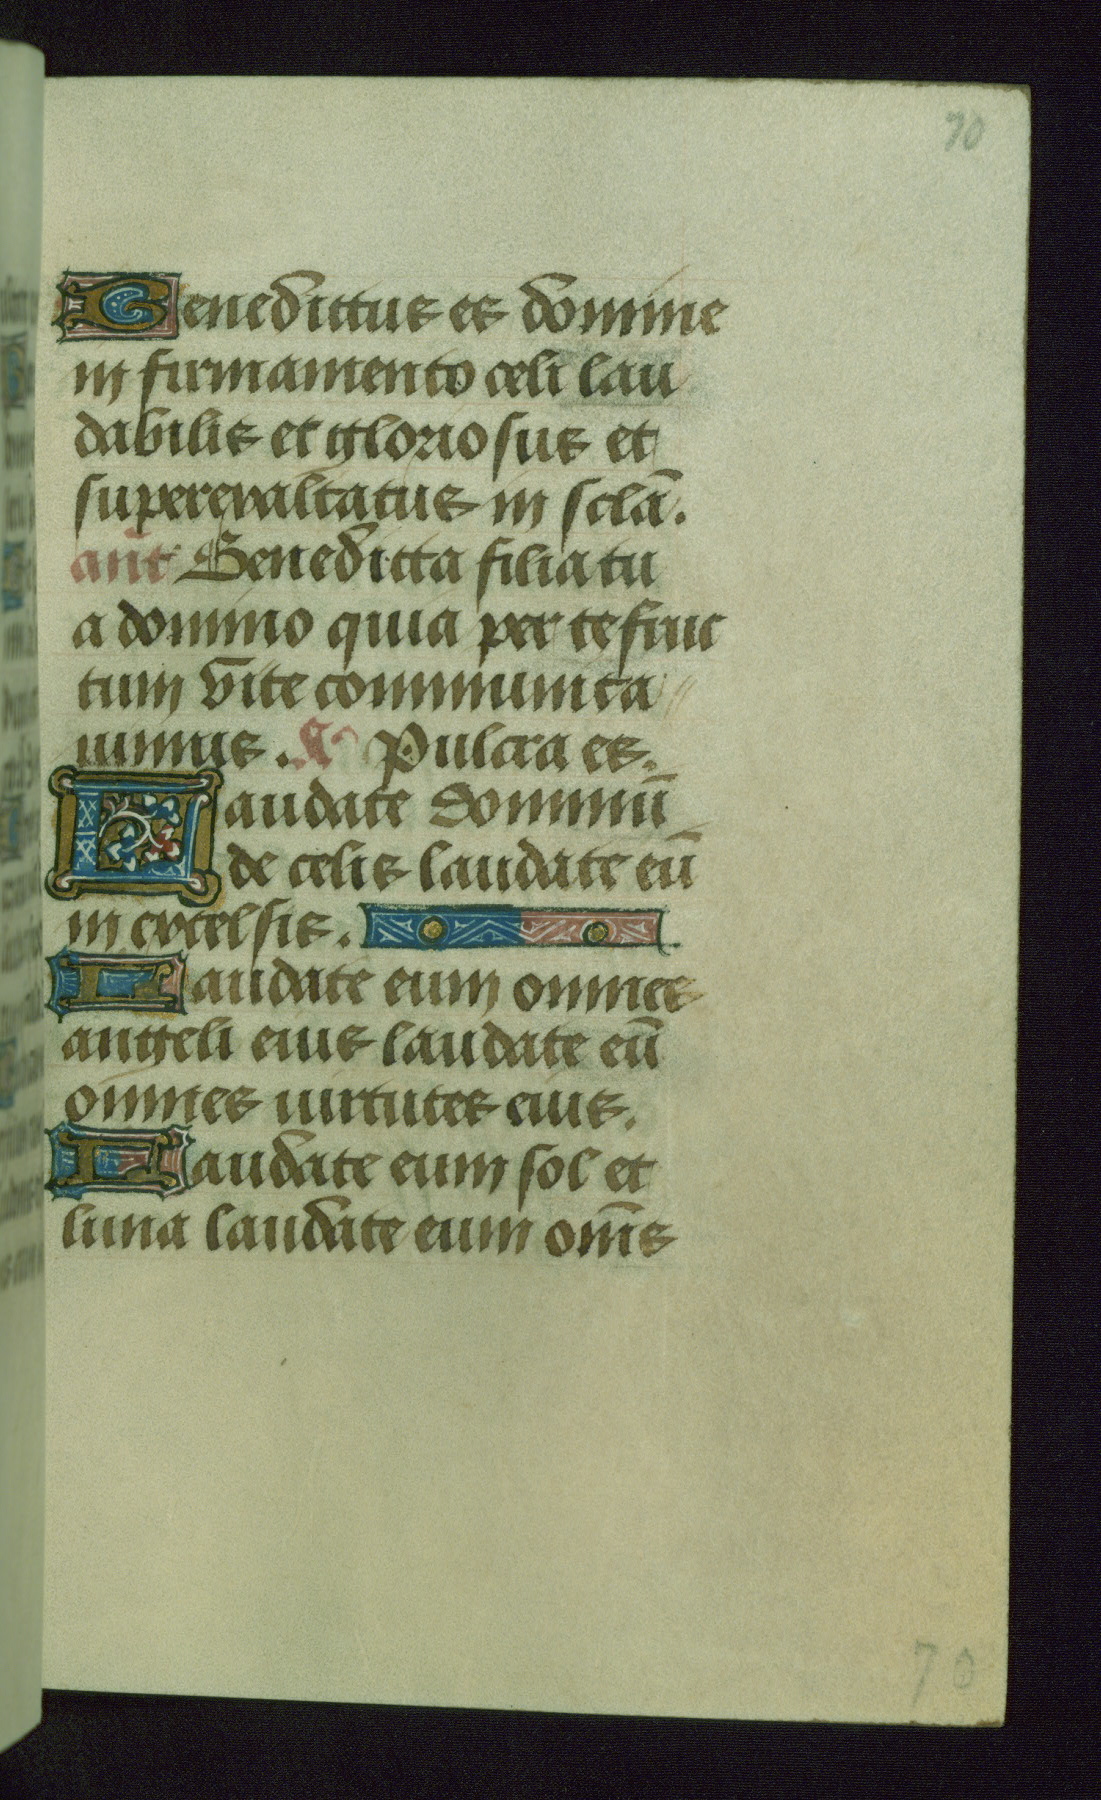 70
Benedictus es domine
in firmamento celi lau
dabilis et gloriosus et
superexaltatus in sclā.
añt Benedicta filia tu
a domino quia per te fruc
tum vite communica
uimus. Pulcra es.
Laudate dominū
de celis laudate eū
in excelsis.
Laudate eum omnes
angeli eius laudate eū
omnes uirtutes eius.
Laudate eum sol et
luna laudate eum om̄s
70